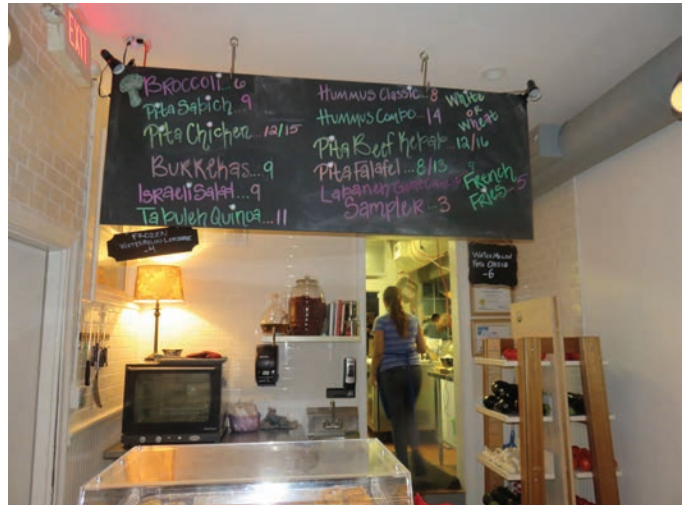 EXIT
BROCCOLI...6
Pita Sabich...9
Pita Chicken...12/15
BURREKAS...9
ISRAELI Salad...9
Tabuleh Quinoa...11
HUMMUS Classic...8
HUMMUS Combo...14
Pita Beef Kebab...12/16
Pita Falafel...8/13
Labaneh
Sampler...3
White
OR
Wheat
French
Fries-5
FROZEN
WATERMELON LEMONADE
-4
WATERMELON
Feta Cheese
-6